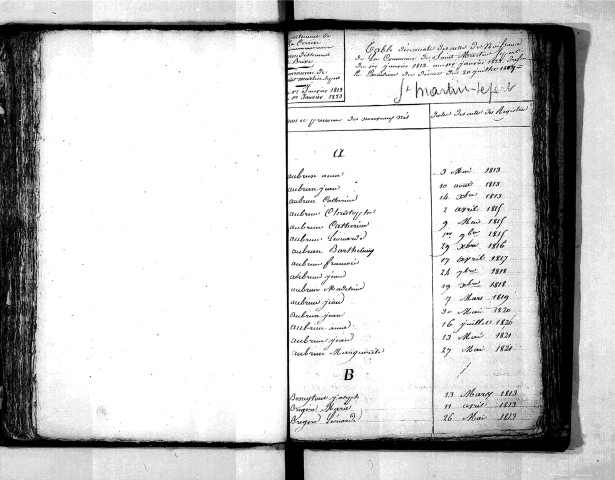 Département de
la Corrèze
arrondissement
de Brive
Commune de
St martin Sepert
1er Janvier 1813
1er Janvier 1823
Table décennale des actes de Naissance
de la Commune de Saint Martin Sepert
du 1er janvier 1813 au 1er janvier 1823
le du 20 juillet 1807
St Martin-Sepert
Noms et prénoms des nouveaux nés
Dates des actes des Registres
a
aubrun anna 3 Mai 1813
aubrun jean 10 aout 1813
aubrun Catherine 14 xbre 1813
aubrun Christophe 2 avril 1815
aubrun Catherine 9 Mai 1815
aubrun Léonarde 1er 9bre 1815
aubrun Barthelemy 29 xbre 1816
aubrun francois 17 avril 1817
aubrun jean 24 7bre 1818
aubrun Madeleine 19 xbre 1818
aubrun jean 7 Mars 1819
aubrun jean 30 Mai 1820
aubrun anna 16 juillet 1820
aubrun jean 13 Mai 1821
aubrun Marguerite 27 Mai 1821
B
joseph 13 Mars 1813
Brégere Marie 11 avril 1813
Brégere Léonarde 26 Mai 1813